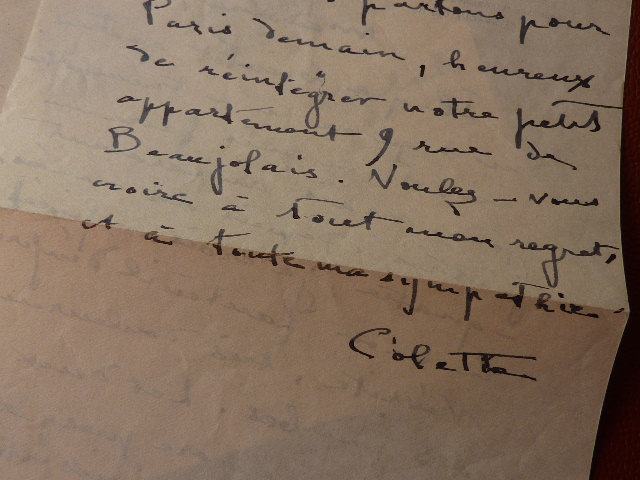 partons pour
Paris demain, heureux
de réintégrer notre petit
appartement 9 rue de
Beaujolais. Voulez-vous
croire à tout mon regret,
et à toute ma sympathie.
Colette